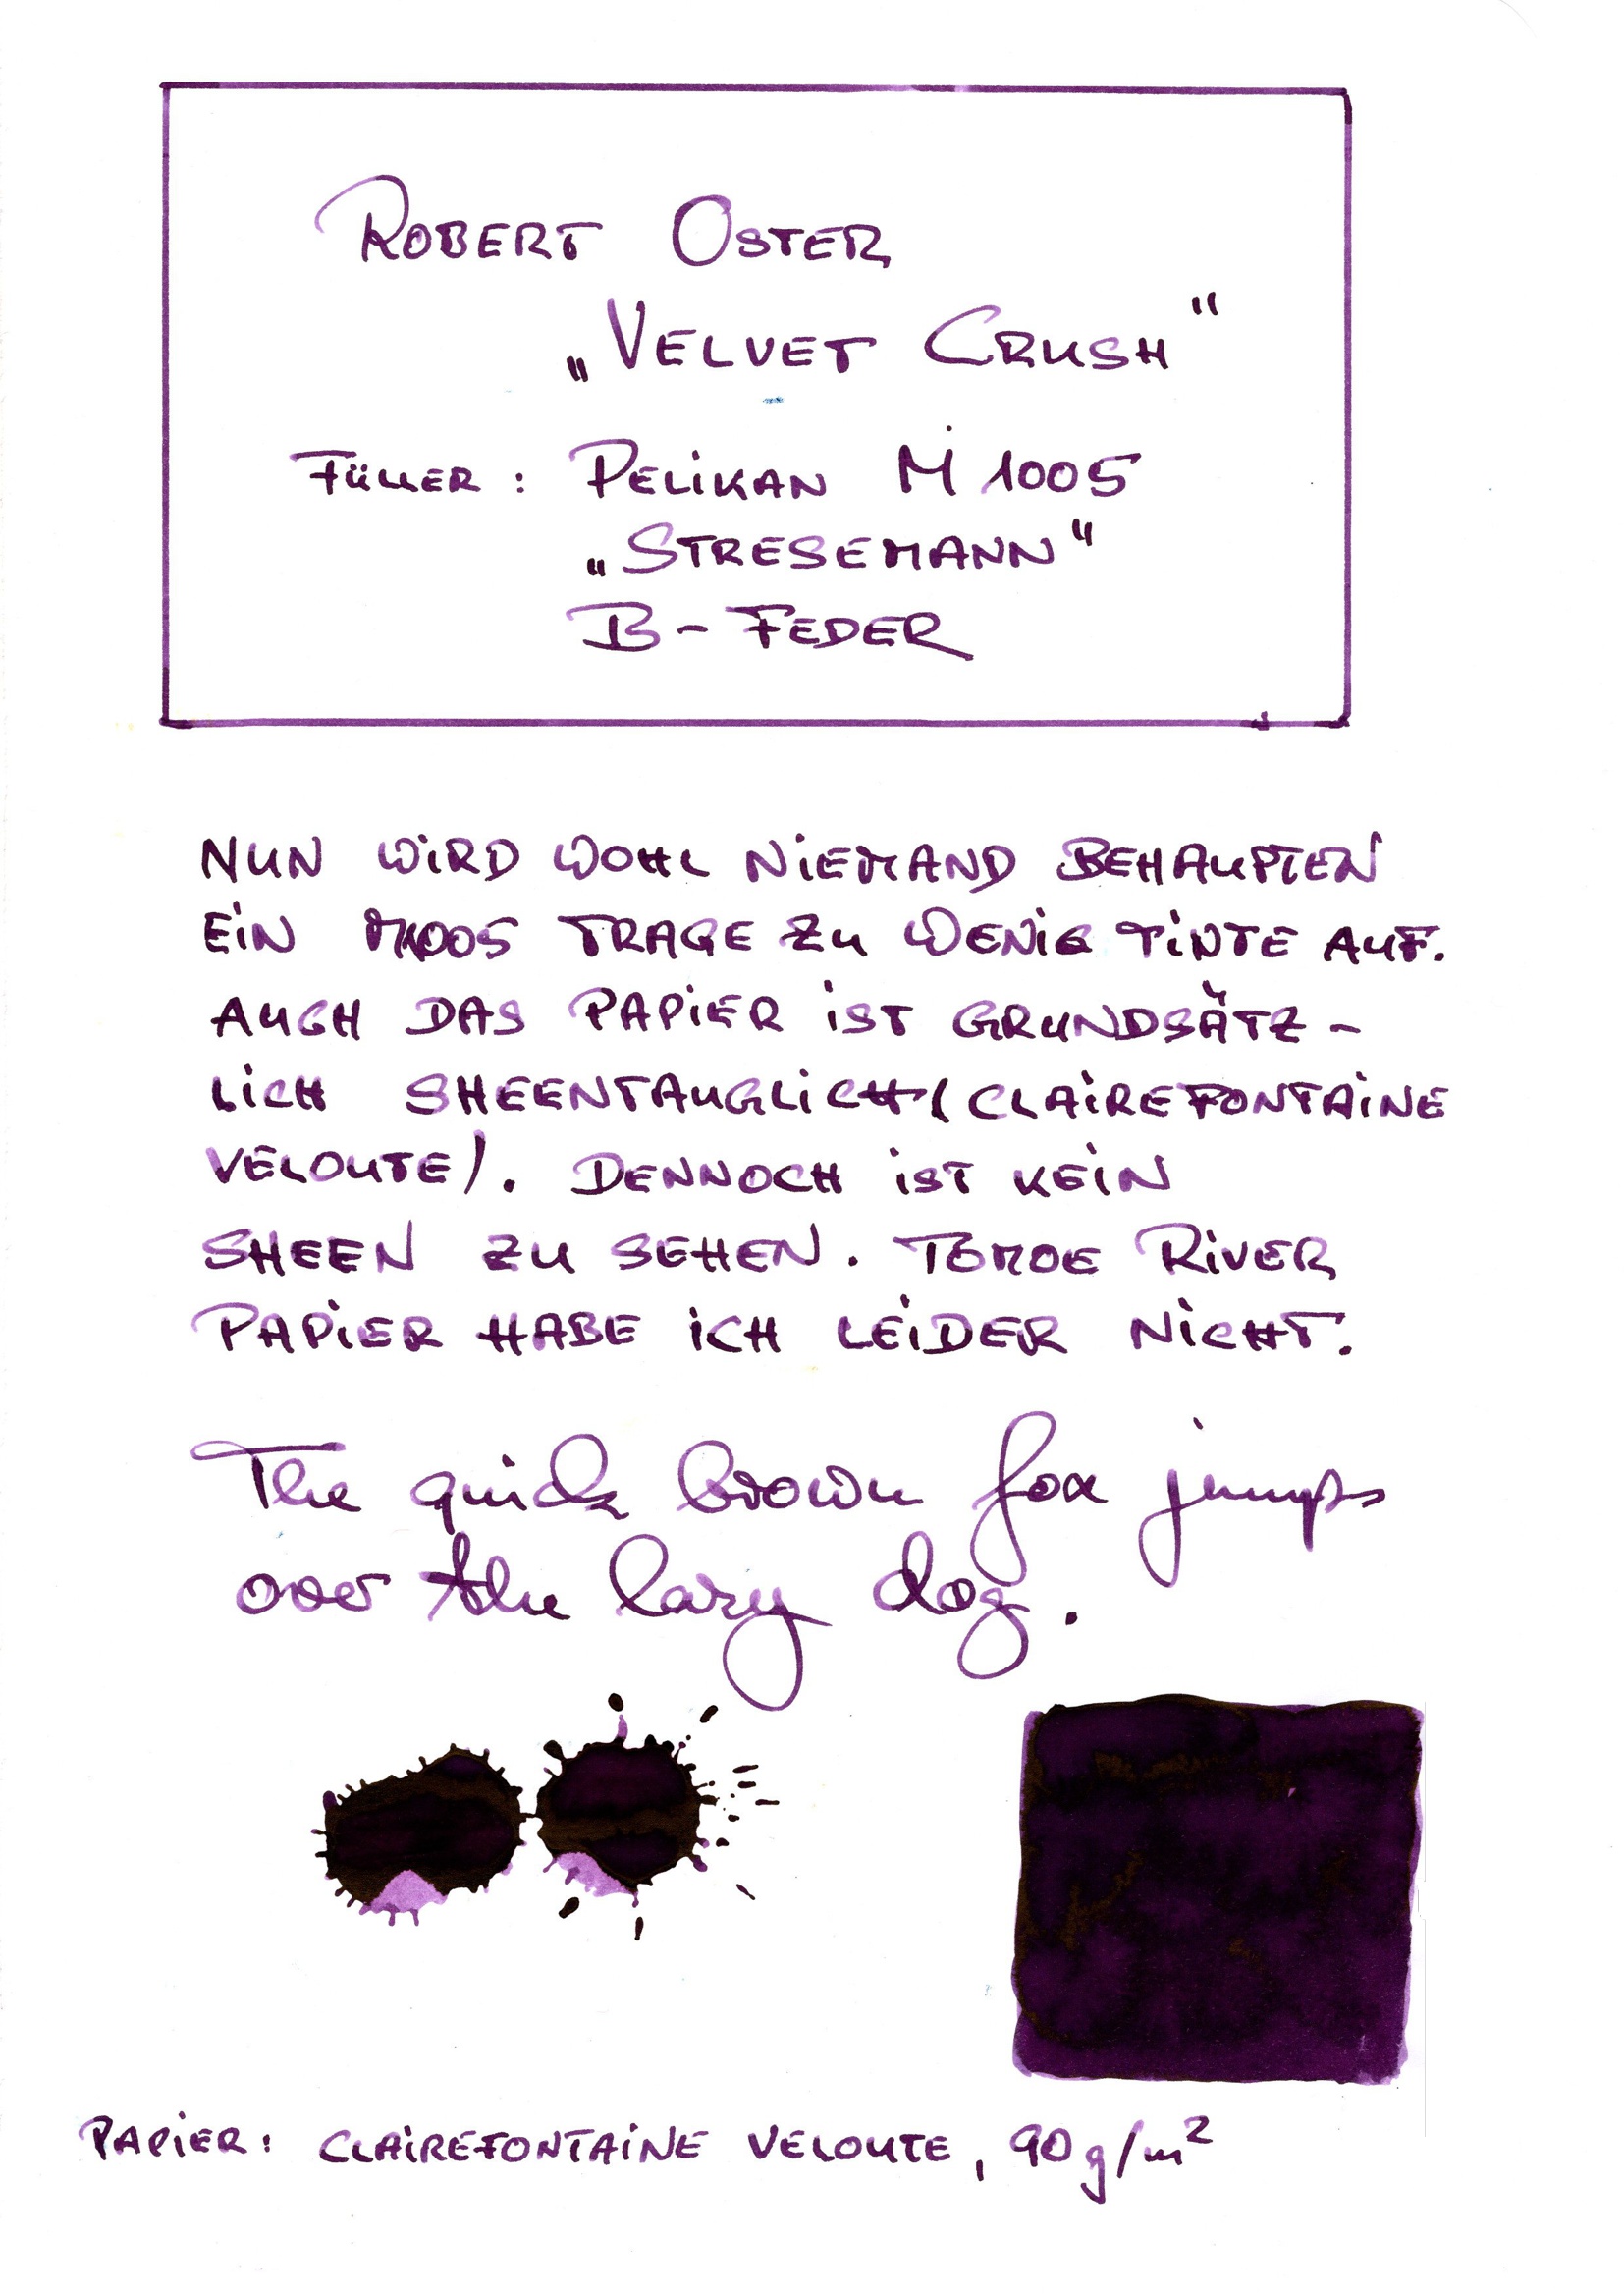 ROBERT OSTER
„VELVET CRUSH"
FÜLLER: PELIKAN M 1005
„STRESEMANN"
B-FEDER
NUN WIRD WOHL NIEMAND BEHAUPTEN
EIN M1005 TRAGE ZU WENIG TINTE AUF.
AUCH DAS PAPIER IST GRUNDSÄTZ-
LICH SHEENTAUGLICH (CLAIREFONTAINE
VELOUTE). DENNOCH IST KEIN
SHEEN ZU SEHEN. TOMOE RIVER
PAPIER HABE ICH LEIDER NICHT.
The quick brown fox jumps
over the lazy dog.
PAPIER: CLAIREFONTAINE VELOUTE, 90g/m²